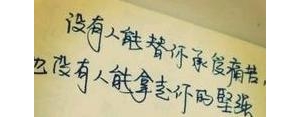 没有人能替你承受痛苦,
也没有人能拿走你的坚强